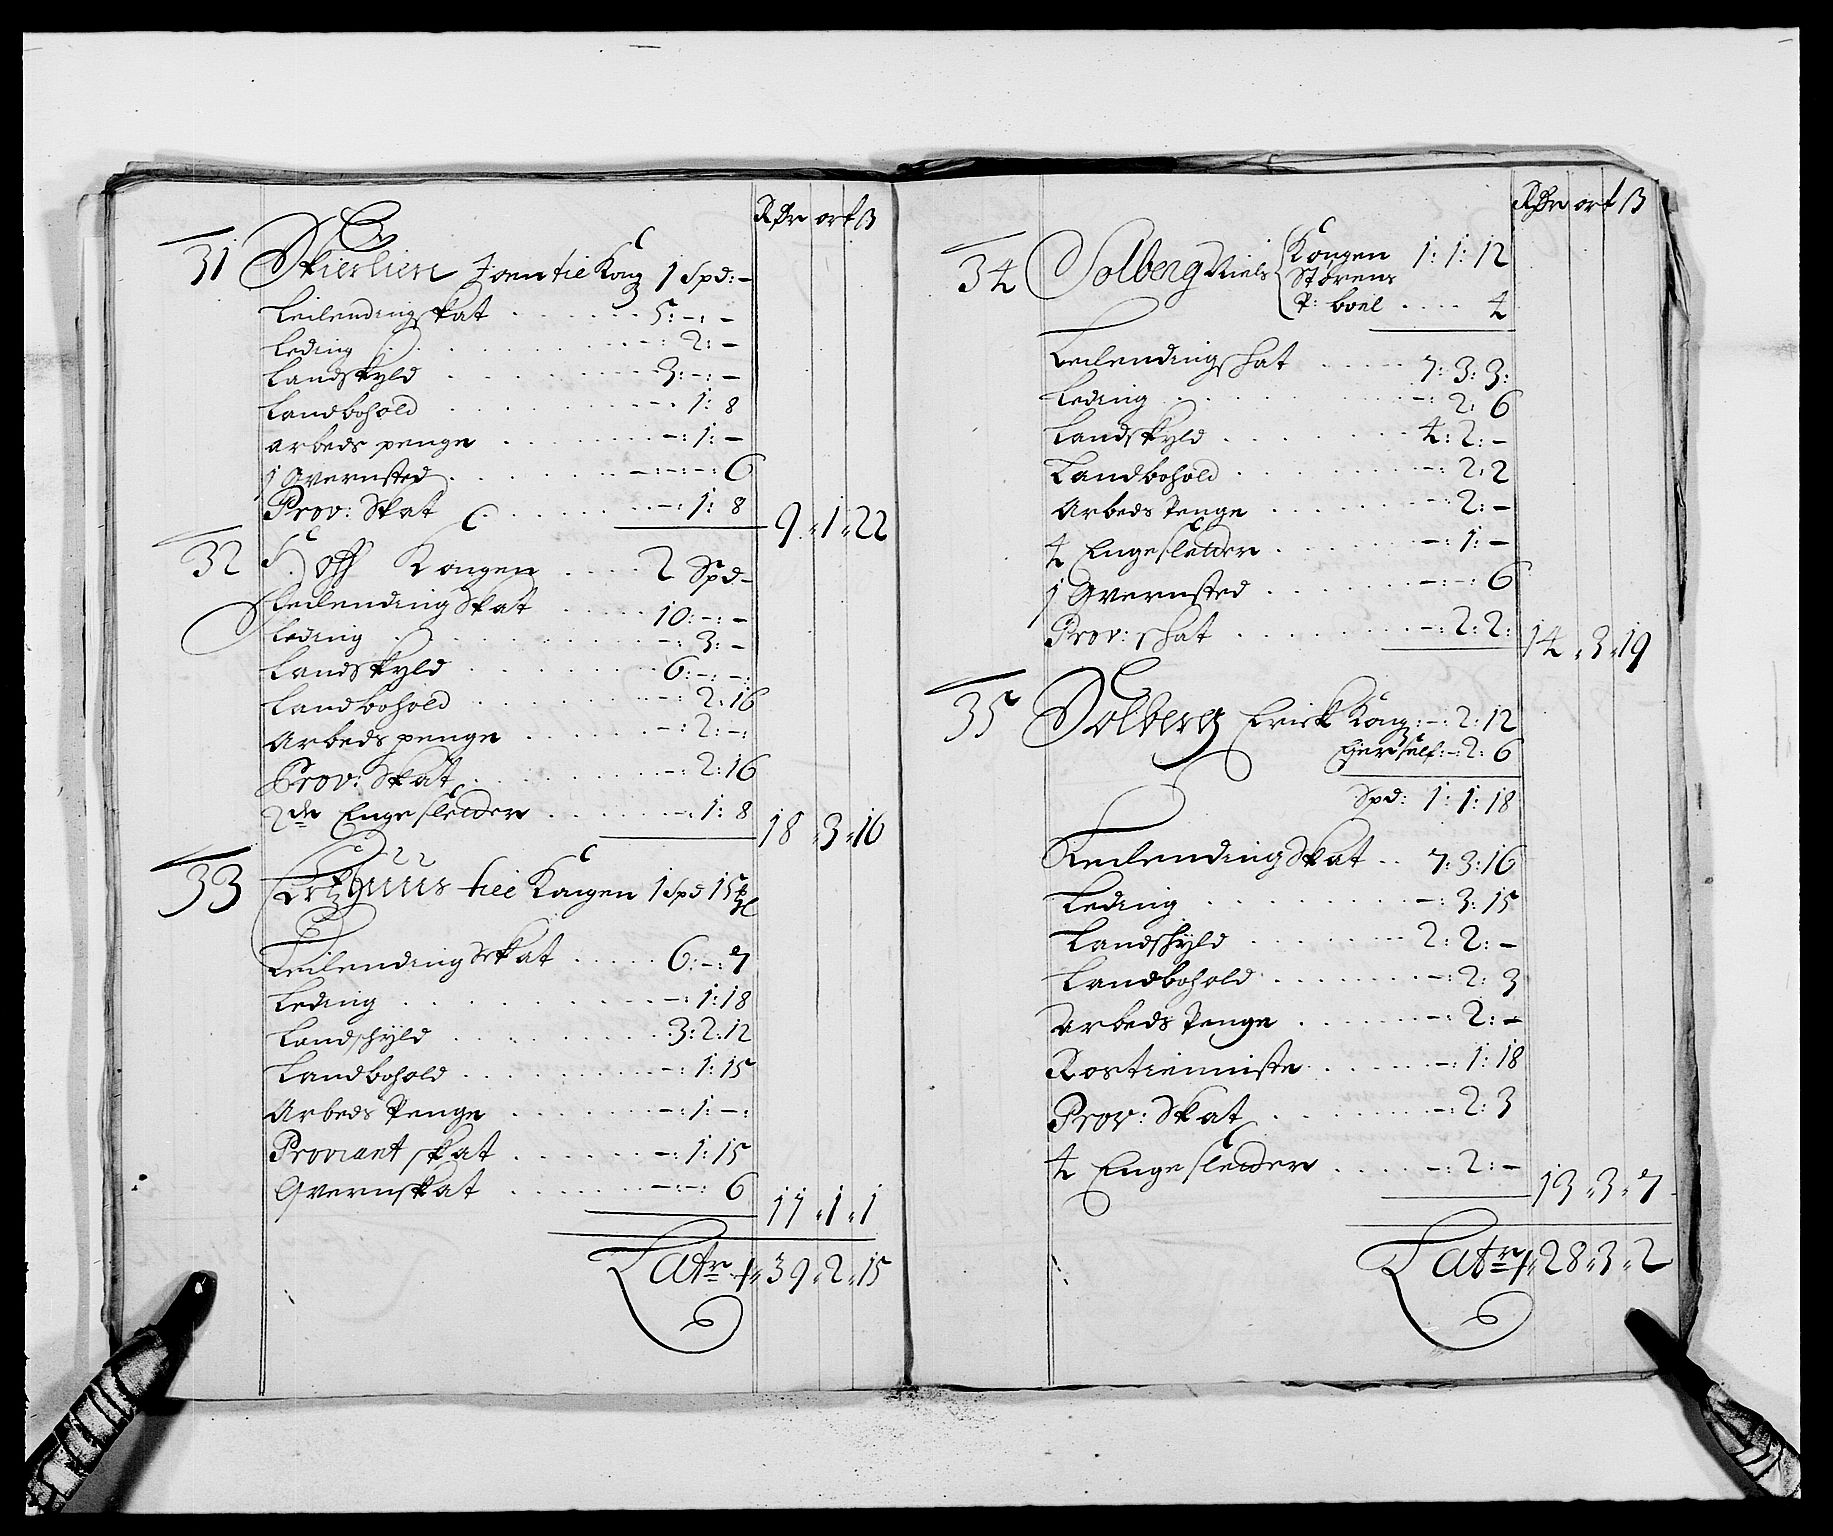 Rdr ort β
31 Skierliere Joen til Kong 1 Spd: -
Leilending skat . . . . . . 5: -: -
Leding . . . . . . - : 2: -
Landskyld . . . . . . 3: -: -
Landbohold . . . . . . -: 1: 8
arbeds penge . . . . . -: 1: -
1 Qvernsted . . . . . -: -: 6
Prov: Skat . . . . . -: 1: 8
9 " 1 " 22
32 Kongen . . . . 2 Spd -
Leilending Skat . . . . . 10: -: -
Leding . . . . . . -: 3: -
Landskyld . . . . . . 6: -: -:
Landbohold . . . . . . -: 2: 16
Arbeds penge . . . . . -: 2: -:
Prov: Skat . . . . . -: 2: 16
2de Enge sletter . . . . . -: 1: 8
18 " 3 " 16
33 til Kongen 1 Spd 15
Leilending Skat . . . . . 6: -: 7
Leding . . . . . . -: 1: 18
Landskyld . . . . . . 3: 2: 12
Landbohold . . . . . . -: 1: 15
Arbeds Penge . . . . . -: 1: -:
Proviant skat . . . . . -: 1: 15
Qvernskat . . . . . -: -: 6
11 " 1 " 1
Latr " 39 " 2 " 15
Rdr ort β
34 Solberg Niels Kongen 1: 1: 12
Storens
P: boel . . . . 4
Leilending skat . . . . . 7: 3: 3:
Leding . . . . . . -: 2: 6
Landskyld . . . . . . 4: 2: -
Landbohold . . . . . . -: 2: 2
Arbeds Penge . . . . . -: 2: -
4 Enge sletter . . . . . -: 1: -
1 Qvernsted . . . . . -: -: 6
Prov: skat . . . . . -: 2: 2:
14 " 3 " 19
35 Solberg Erick Kong: -: 2: 12
Hjerself: -: 2: 6
Spd: 1: 1: 18
Leilending Skat . . 7: 3: 16
Leding . . . . . . -: 3: 15
Landskyld . . . . . . 2: 2: -
Landbohold . . . . . . -: 2: 3
Arbeds Penge . . . . . -: 2: -
Rostienniste . . . . . -: 1: 18
Prov: Skat . . . . . -: 2: 3
4 Enge sletter . . . . . -: 2: -
13 " 3 " 7
Latr " 28 " 3 " 2